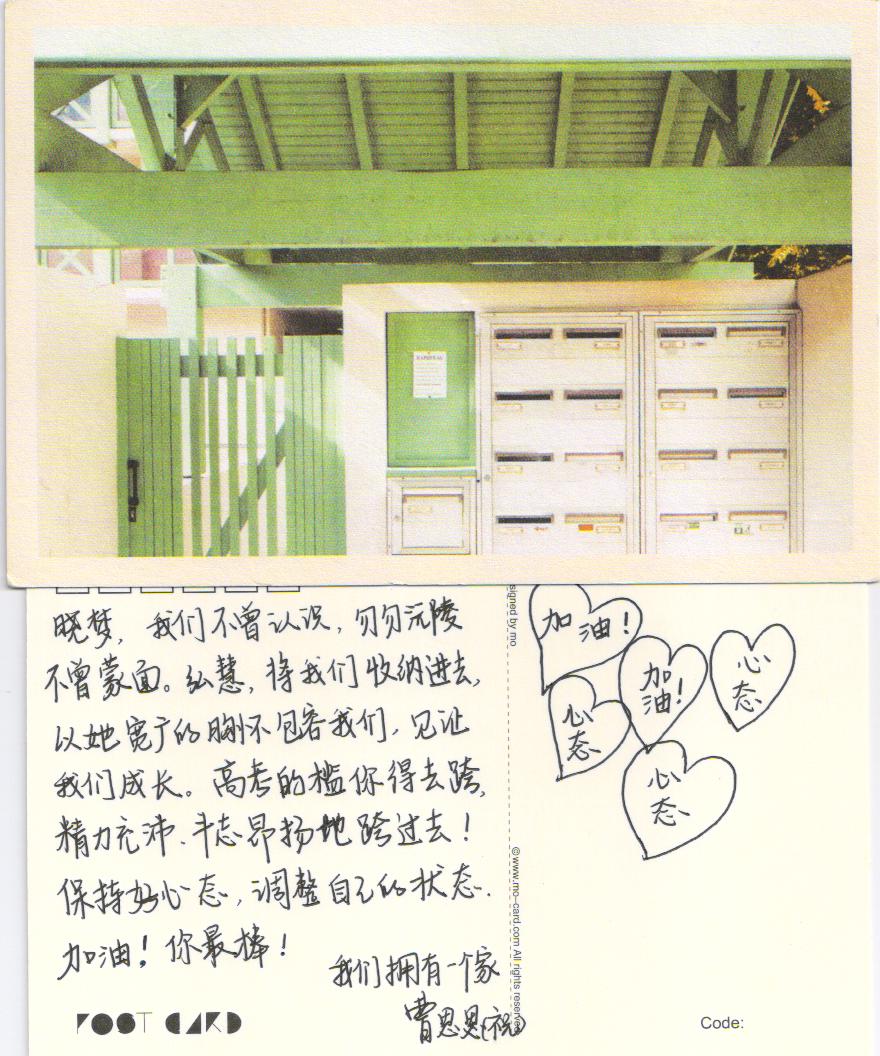 晓梦，我们不曾认识，匆匆沅陵
不曾蒙面。弘慧，将我们收纳进去，
以她宽广的胸怀包容我们，见证
我们成长。高考的槛你得去跨，
精力充沛、斗志昂扬地跨过去！
保持好心态，调整自己的状态.
加油！你最棒！
我们拥有一个家
曹思恩(祝)
POST CARD
signed by mo
©www.mo-card.com All rights reserve
加油！
加油！
心态
心态
心态
Code: